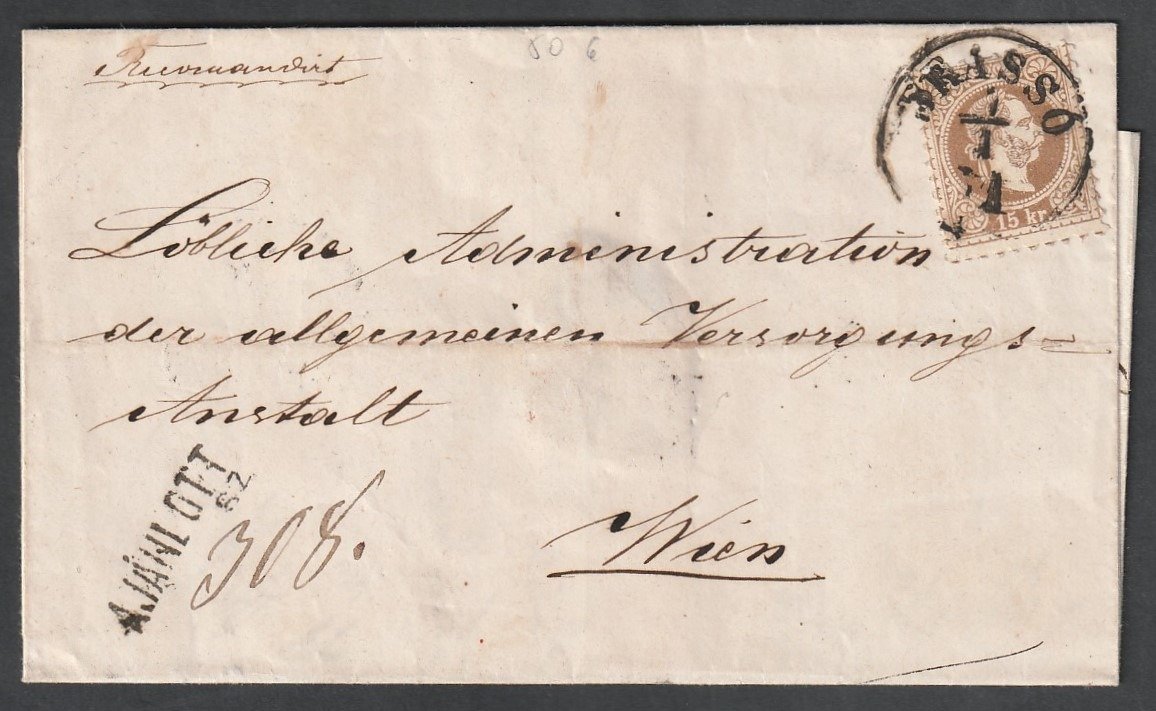 80 6
Recomandirt
BRASSÓ
1
1
15 kr
Löbliche Administration
der allgemeinen Versorgungs=
Anstalt
AJÁNLOTT
SZ
308.
Wien